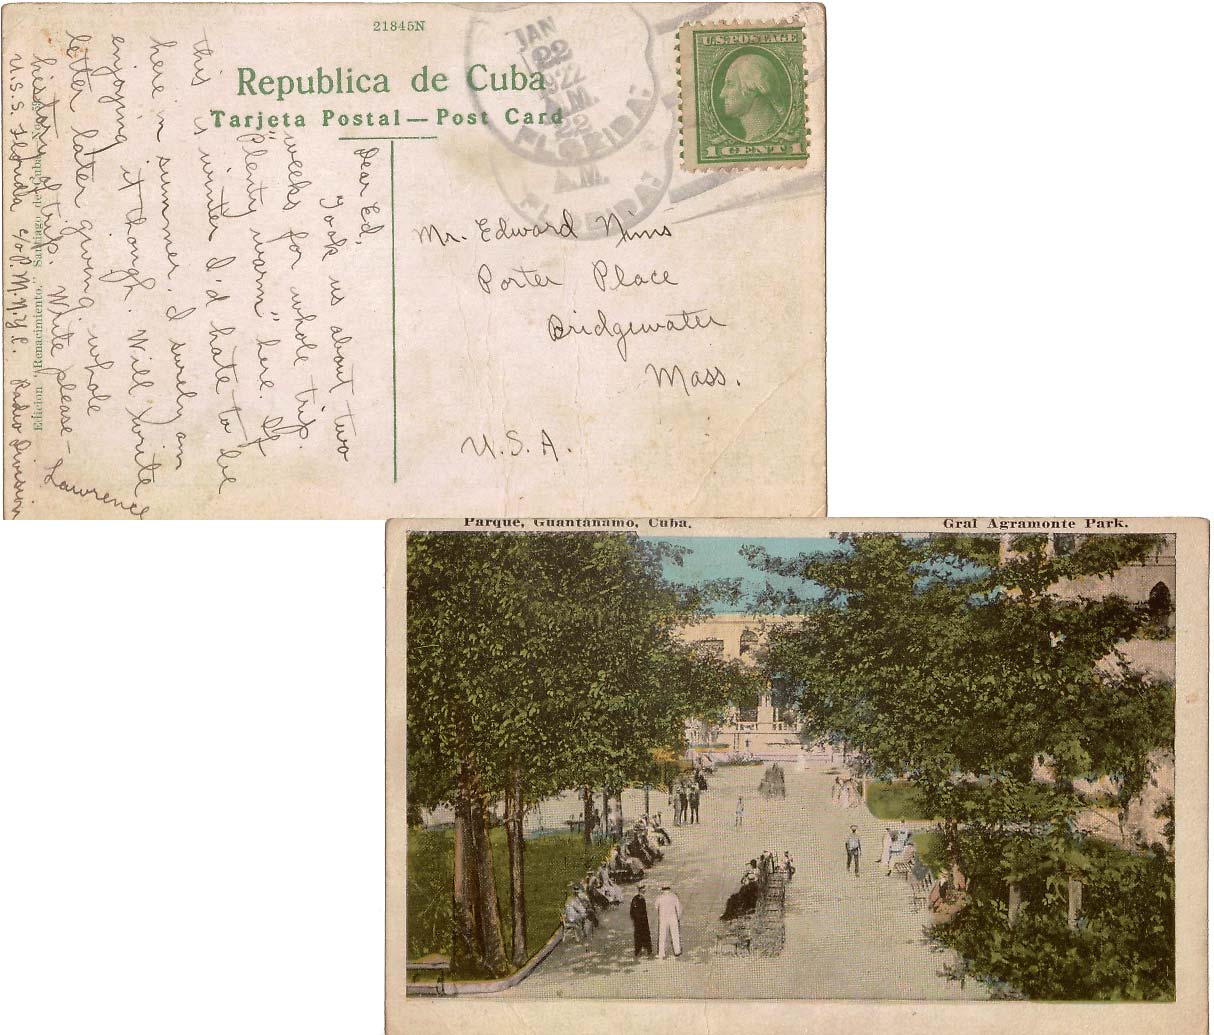 21845N
Republica de Cuba
Tarjeta Postal — Post Card
JAN
22
1922
A.M.
FLORIDA.
A.M.
FLORIDA.
U.S. POSTAGE
1 CENT 1
Dear Ed,
Took us about two
weeks for whole trip.
"Plenty warm" here. If
this is winter I'd hate to be
here in summer. I surely am
enjoying it though. Will write
letter later giving whole
history of trip. Write please —
Lawrence
U.S.S. Florida c/o P.M. N.Y.C. Radio Division
Edicion "Renacimiento," Santiago de Cuba
Mr. Edward Nims
Porter Place
Bridgewater
Mass.
U.S.A.
Parque, Guantánamo, Cuba.
Gral Agramonte Park.